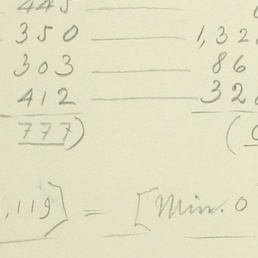 445
350 — 1,32
303 — 86
412 — 32
777) (
,119] = [Min. 0